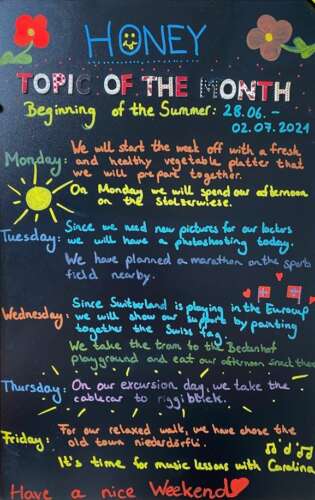 HONEY
TOPIC OF THE MONTH
Beginning of the Summer: 28.06. -
02.07.2021
Monday: We will start the week off with a fresh
and healthy vegetable platter that
we will prepare together.
On Monday we will spend our afternoon
on the Stolzewiese.
Tuesday: Since we need new pictures for our lockers
we will have a photoshooting today.
We have planned a marathon on the sports
field nearby.
Wednesday: Since Switzerland is playing in the Eurocup
we will show our support by painting
together the Swiss flag
We take the tram to the Beckenhof
playground and eat our afternoon snack there
Thursday: On our excursion day, we take the
cablecar to riggiblick.
Friday: For our relaxed walk, we have chose the
old town niederdörfli.
It's time for music lessons with Carolina
Have a nice Weekend